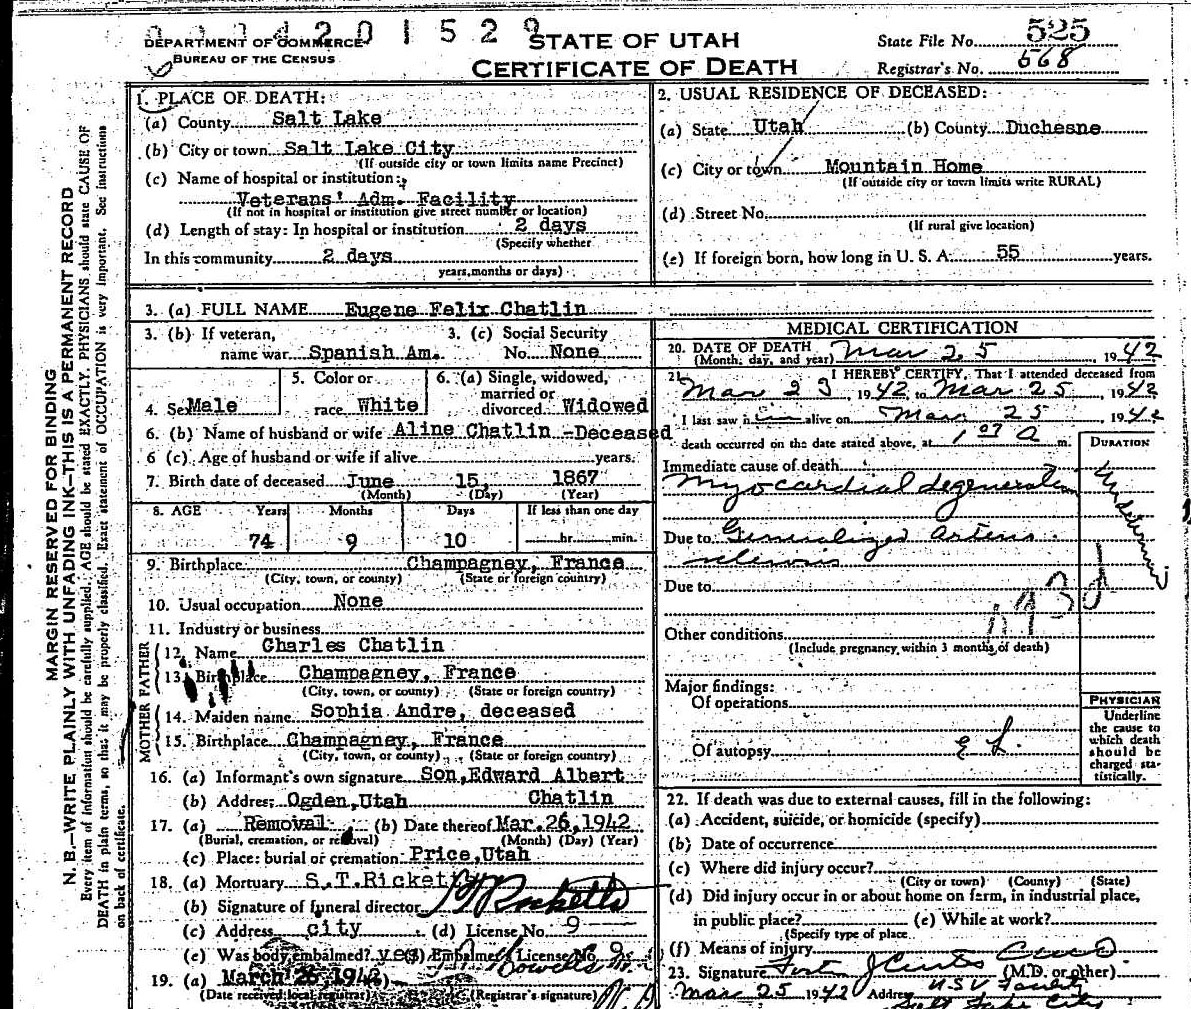 0 0 0 4 2 0 1 5 2 9
DEPARTMENT OF COMMERCE
BUREAU OF THE CENSUS
STATE OF UTAH
CERTIFICATE OF DEATH
State File No. 525
Registrar's No. 568
MARGIN RESERVED FOR BINDING
N. B.—WRITE PLAINLY WITH UNFADING INK—THIS IS A PERMANENT RECORD
Every item of information should be carefully supplied. AGE should be stated EXACTLY. PHYSICIANS should state CAUSE OF
DEATH in plain terms, so that it may be properly classified. Exact statement of OCCUPATION is very important. See instructions
on back of certificate.
1. PLACE OF DEATH:
(a) County Salt Lake
(b) City or town Salt Lake City
(If outside city or town limits name Precinct)
(c) Name of hospital or institution:
Veterans' Adm. Facility
(If not in hospital or institution give street number or location)
(d) Length of stay: In hospital or institution 2 days
(Specify whether
In this community 2 days
years, months or days)
2. USUAL RESIDENCE OF DECEASED:
(a) State Utah (b) County Duchesne
(c) City or town Mountain Home
(If outside city or town limits write RURAL)
(d) Street No.
(If rural give location)
(e) If foreign born, how long in U. S. A. 55 years.
3. (a) FULL NAME Eugene Felix Chatlin
3. (b) If veteran, 3. (c) Social Security
name war Spanish Am. No. None
5. Color or 6. (a) Single, widowed,
married or
4. Sex Male race White divorced Widowed
6. (b) Name of husband or wife Aline Chatlin -Deceased
6 (c). Age of husband or wife if alive years.
7. Birth date of deceased June 15, 1867
(Month) (Day) (Year)
8. AGE Years Months Days If less than one day
74 9 10 hr. min.
9. Birthplace Champagney, France
(City, town, or county) (State or foreign country)
10. Usual occupation None
11. Industry or business
FATHER
12. Name Charles Chatlin
13. Birthplace Champagney, France
(City, town, or county) (State or foreign country)
MOTHER
14. Maiden name Sophia Andre, deceased
15. Birthplace Champagney, France
(City, town, or county) (State or foreign country)
16. (a) Informant's own signature Son, Edward Albert
(b) Address: Ogden, Utah Chatlin
17. (a) Removal (b) Date thereof Mar. 26, 1942
(Burial, cremation, or removal) (Month) (Day) (Year)
(c) Place: burial or cremation Price, Utah
18. (a) Mortuary S.T.Ricketts
(b) Signature of funeral director Ricketts
(c) Address city (d) License No. 9
(e) Was body embalmed? yes Embalmer License No. 9
19. (a) March 26, 1942
(Date received local registrar) (Registrar's signature)
MEDICAL CERTIFICATION
20. DATE OF DEATH
(Month, day, and year) Mar 25, 1942
21. I HEREBY CERTIFY, That I attended deceased from
Mar 23 1942, to Mar 25, 1942
I last saw him alive on Mar 25, 1942
death occurred on the date stated above, at 1 07 a m.
DURATION
Immediate cause of death
Myocardial degeneration
Undetermined
Due to Generalized arterio
sclerosis
Due to
93d
Other conditions
(Include pregnancy within 3 months of death)
Major findings:
Of operations
Of autopsy
PHYSICIAN
Underline
the cause to
which death
should be
charged sta-
tistically.
22. If death was due to external causes, fill in the following:
(a) Accident, suicide, or homicide (specify)
(b) Date of occurrence
(c) Where did injury occur?
(City or town) (County) (State)
(d) Did injury occur in or about home on farm, in industrial place,
in public place? (e) While at work?
(Specify type of place
(f) Means of injury
23. Signature (M.D. or other)
Mar 25 1942 Address USV Facility
Salt Lake City